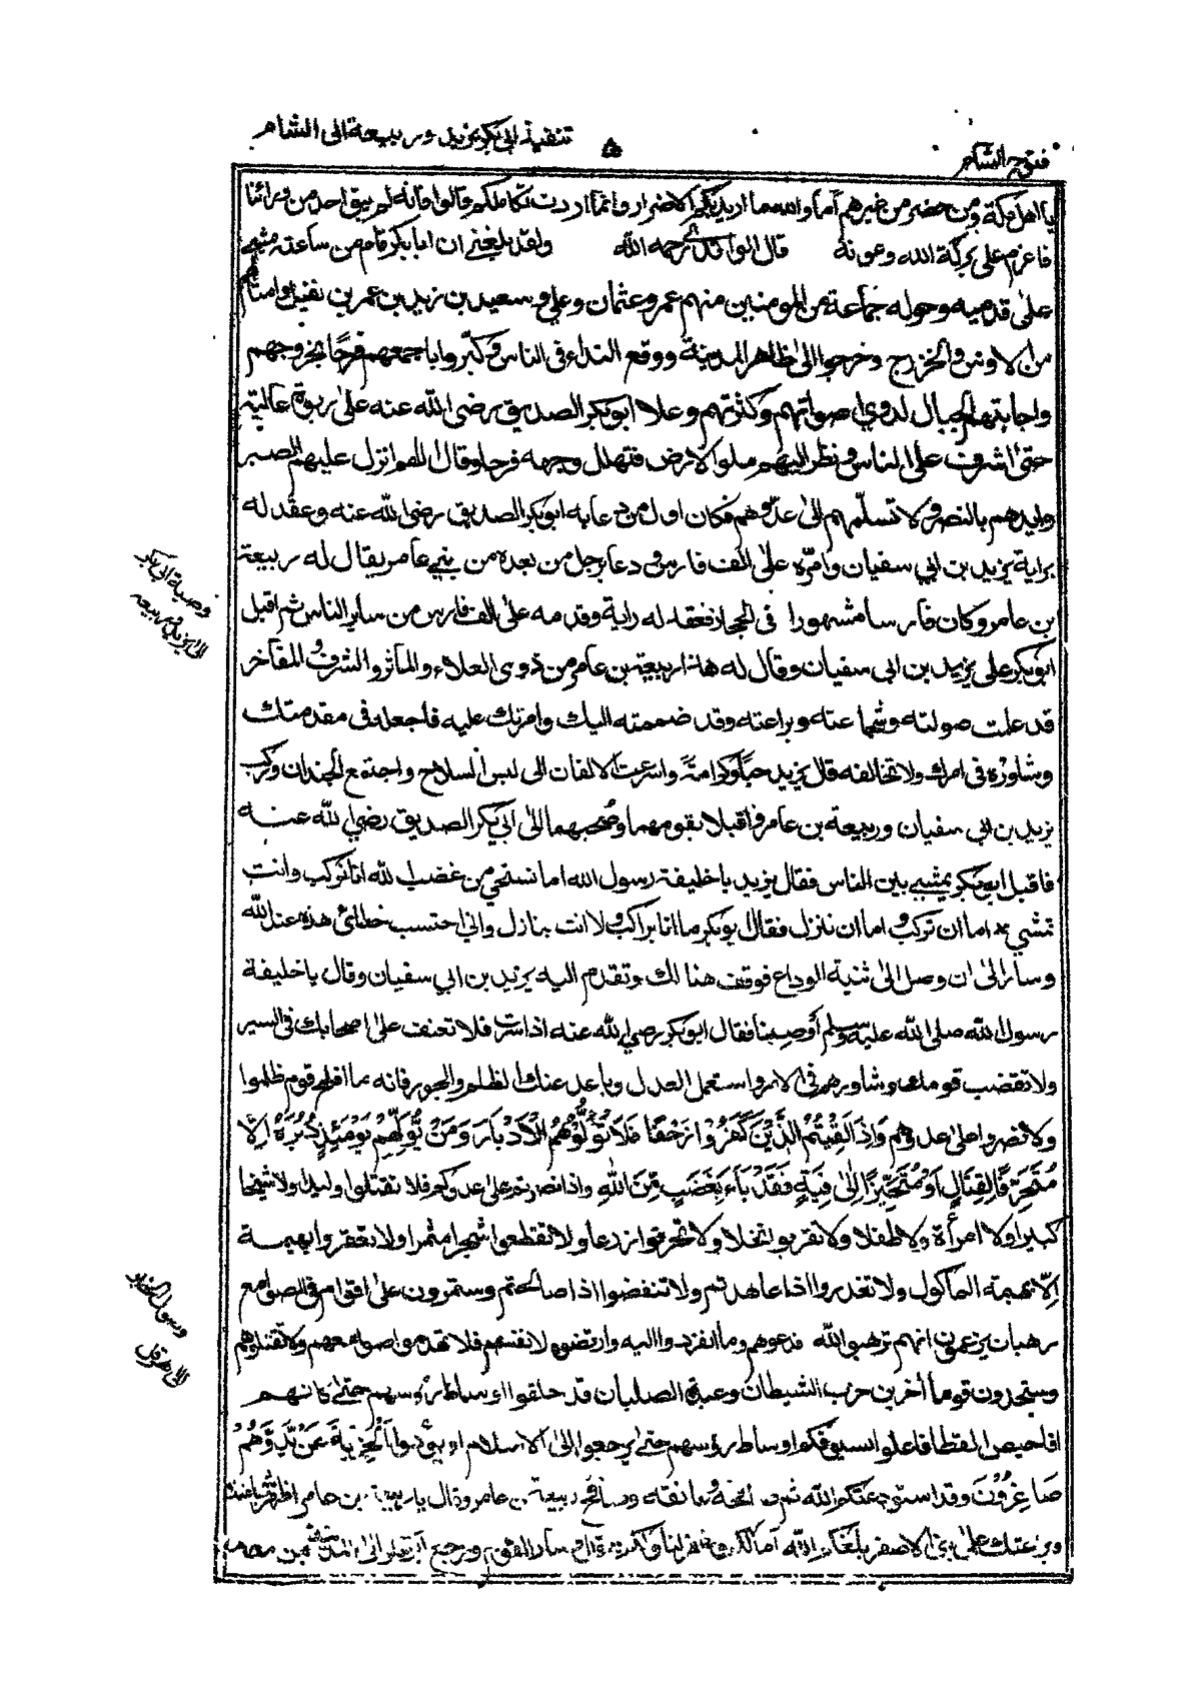 تنفيذ ابي بكر يزيد وربيعة الى الشام
۵
فتوح الشام
يا اهل مكة ومن حضر من غيرهم أما والله ما اريد بكم الاضرار وانما اردت تكاملكم قالوا فانه لم يبق احد من ورائنا
فاعزم على بركة الله وعونه قال الواقدي رحمه الله ولقد بلغني ان ابا بكر قام من ساعته مشى
على قدميه وحوله جماعة من المومنين منهم عمر وعثمان وعلي وسعيد بن زيد بن عمر بن نفيل وامثالهم
من الاوس والخزرج وخرجوا الى ظاهر المدينة ووقع النداء فى الناس وكبروا باجمعهم فرحًا بخروجهم
واجابتهم الجبال لدوي اصواتهم وكثرتهم وعلا ابو بكر الصديق رضى الله عنه على ربوة عالية
حتى اشرف على الناس ونظر اليهم ملوا الارض فتهلل وجهه فرحا وقال اللهم انزل عليهم الصبر
وايدهم بالنصر ولا تسلمهم الى عدوهم فكان اول من دعا به ابو بكر الصديق رضى الله عنه وعقد له
براية يزيد بن ابي سفيان وامّره على الف فارس ودعا برجل من بعده من بني عامر يقال له ربيعة
بن عامر وكان فارسا مشهورا فى الحجاز فعقد له راية وقدمه على الف فارس من ساير الناس ثم اقبل
ابو بكر على يزيد بن ابى سفيان وقال له هذا ربيعة بن عامر من ذوى العلاء والمأثر والشرف والمفاخر
قد علمت صولته وشجاعته وبراعته وقد ضممته اليك وامرتك عليه فاجعله فى مقدمتك
وشاوره فى امرك ولا تخالفه قال يزيد حبًا وكرامةً واسرعت الالفان الى لبس السلاح واجتمع الجندان وركب
يزيد بن ابي سفيان وربيعة بن عامر واقبلا بقومهما وصحبهما الى ابي بكر الصديق رضي الله عنه
فاقبل ابو بكر يمشى بين الناس فقال يزيد يا خليفة رسول الله اما نستحي من غضب لله انا نركب وانت
تمشي اما ان تركب واما ان ننزل فقال ابو بكر ما انا براكب ولا انت بنازل واني احتسب خطائى هذه عند الله
وسار الى ان وصل الى ثنية الوداع فوقف هنالك وتقدم اليه يزيد بن ابي سفيان وقال يا خليفة
رسول الله صلى الله عليه وسلم أوصينا فقال ابو بكر رضي الله عنه اذا سرت فلا تعنف على اصحابك فى السير
ولا تغضب قومك وشاورهم فى الامر واستعمل العدل وباعد عنك الظلم والجور فانه ما افلح قوم ظلموا
ولا نصروا على عدوهم وَاِذَا لَقِيتُمُ الَّذِيْنَ كَفَرُوْا زَحْفًا فَلَا تُوَلُّوْهُمُ الْاَدْبَارَ وَمَنْ يُّوَلِّهِمْ يَوْمَئِذٍ دُبُرَهٗ اِلَّا
مُتَحَرِّفًا لِّقِتَالٍ اَوْ مُتَحَيِّزًا اِلٰى فِئَةٍ فَقَدْ بَآءَ بِغَضَبٍ مِّنَ اللهِ واذا نصرتم على عدوكم فلا تقتلوا وليدا ولا شيخا
كبيرا ولا امرأة ولا طفلا ولا تقربوا نخلا ولا تحرقوا زرعا ولا تقطعوا شجرا مثمرا ولا تعقروا بهيمة
الّا بهيمة الماكول ولا تغدروا اذا عاهدتم ولا تنقضوا اذا صالحتم وستمرون على اقوام فى الصوامع
رهبان يزعمون انهم ترهبوا لله فدعوهم وما انفردوا اليه وارتضوه لانفسهم فلا تهدموا صوامعهم ولا تقتلوهم
وستجدون قوما أخرين حزب الشيطان وعبدة الصلبان قد حلقوا اوساط رؤسهم حتى كانهم
افاحيص القطا فاعلوا بسيوفكم اوساط رؤسهم حتى يرجعوا الى الاسلام او يؤدوا الْجِزْيَةَ عَنْ يَّدٍ وَّهُمْ
صَاغِرُوْنَ وقد استودعتكم الله ثم وعانقه وصافح ربيعة بن عامر وقال يا ربيعة بن عامر اظهر شجاعتك
على بني الاصفر بلغكم الله آمالكم وغفر لنا ولكم قال وسار القوم ورجع ابو بكر الى المدينة بمن معه
وصية ابي بكر
الى يزيد وربيعه
ورسول الخبر
الى هرقل